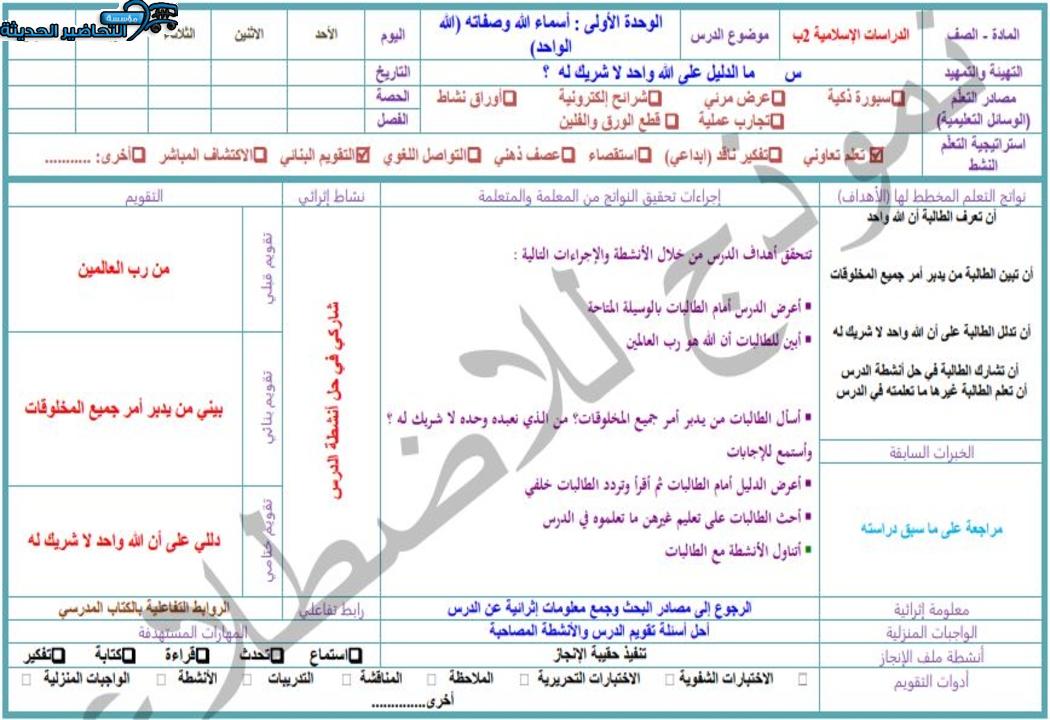 مؤسسة
التحاضير الحديثة
المادة - الصف
الدراسات الإسلامية 2ب
موضوع الدرس
الوحدة الأولى : أسماء الله وصفاته (الله
الواحد)
اليوم
الأحد
الاثنين
الثلاثاء
التهيئة والتمهيد
س ما الدليل على الله واحد لا شريك له ؟
التاريخ
مصادر التعلم
(الوسائل التعليمية)
☐سبورة ذكية ☐عرض مرئي ☐شرائح إلكترونية ☐أوراق نشاط
☐تجارب عملية ☐ قطع الورق والفلين
الحصة
الفصل
استراتيجية التعلم
النشط
☑ تعلم تعاوني ☐تفكير ناقد (ابداعي) ☐استقصاء ☐عصف ذهني ☐التواصل اللغوي ☑التقويم البنائي ☐الاكتشاف المباشر ☐أخرى: ...........
نواتج التعلم المخطط لها (الأهداف)
إجراءات تحقيق النواتج من المعلمة والمتعلمة
نشاط إثرائي
التقويم
أن تعرف الطالبة أن الله واحد
أن تبين الطالبة من يدبر أمر جميع المخلوقات
أن تدلل الطالبة على أن الله واحد لا شريك له
أن تشارك الطالبة في حل أنشطة الدرس
أن تعلم الطالبة غيرها ما تعلمته في الدرس
الخبرات السابقة
مراجعة على ما سبق دراسته
تتحقق أهداف الدرس من خلال الأنشطة والإجراءات التالية :
▪ أعرض الدرس أمام الطالبات بالوسيلة المتاحة
▪ أبين للطالبات أن الله هو رب العالمين
▪ أسأل الطالبات من يدبر أمر جميع المخلوقات؟ من الذي نعبده وحده لا شريك له ؟
وأستمع للإجابات
▪ أعرض الدليل أمام الطالبات ثم أقرأ وتردد الطالبات خلفي
▪ أحث الطالبات على تعليم غيرهن ما تعلموه في الدرس
▪ أتناول الأنشطة مع الطالبات
شاركي في حل أنشطة الدرس
تقويم قبلي
من رب العالمين
تقويم بنائي
بيني من يدبر أمر جميع المخلوقات
تقويم ختامي
دللي على أن الله واحد لا شريك له
معلومة إثرائية
الرجوع إلى مصادر البحث وجمع معلومات إثرائية عن الدرس
رابط تفاعلي
الروابط التفاعلية بالكتاب المدرسي
الواجبات المنزلية
أحل أسئلة تقويم الدرس والأنشطة المصاحبة
المهارات المستهدفة
أنشطة ملف الإنجاز
تنفيذ حقيبة الإنجاز
☐استماع ☐تحدث ☐قراءة ☐كتابة ☐تفكير
أدوات التقويم
☐ الاختبارات الشفوية ☐ الاختبارات التحريرية ☐ الملاحظة ☐ المناقشة ☐ التدريبات ☐ الأنشطة ☐ الواجبات المنزلية ☐
أخرى..............
نموذج للاطلاع